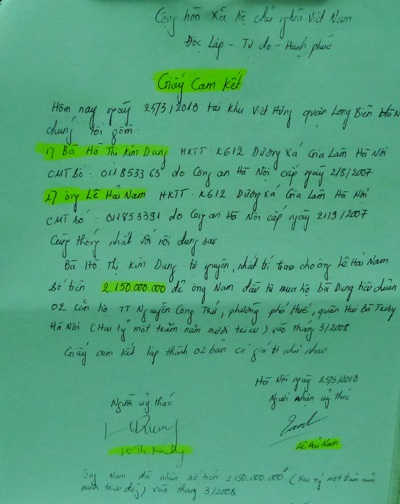 Cộng hòa xã hội chủ nghĩa Việt Nam
Độc Lập - Tự do - Hạnh phúc
Giấy Cam Kết
Hôm nay ngày 25/5/2010 tại khu Việt Hưng quận Long Biên Hà Nội
chúng tôi gồm.
1) Bà Hồ Thị Kim Dung HKTT - K612 Dương Xá Gia Lâm Hà Nội
CMT số. 011853365 do Công an Hà Nội cấp ngày 2/8/2007
2) Ông Lê Hải Nam HKTT - K612 Dương Xá Gia Lâm Hà Nội
CMT số. 011853381 do Công an Hà Nội cấp ngày 21/9/2007
Cùng thống nhất với nội dung sau.
Bà Hồ Thị Kim Dung tự nguyện, nhất trí trao cho ông Lê Hải Nam
số tiền 2.150.000.000 để ông Nam đầu tư mua hộ bà Dung tiêu chuẩn
02 căn hộ TT Nguyễn Công Trứ, phường phố Huế, quận Hai Bà Trưng
Hà Nội (Hai tỷ một trăm năm mươi triệu) vào tháng 3/2008
Giấy cam kết lập thành 02 bản có giá trị như nhau
Hà Nội ngày 25/5/2010
Người uỷ thác Người nhận uỷ thác
Lê Hải Nam
Ông Nam đã nhận số tiền 2.150.000.000đ (Hai tỷ một trăm năm
mươi triệu đồng) vào tháng 3/2008